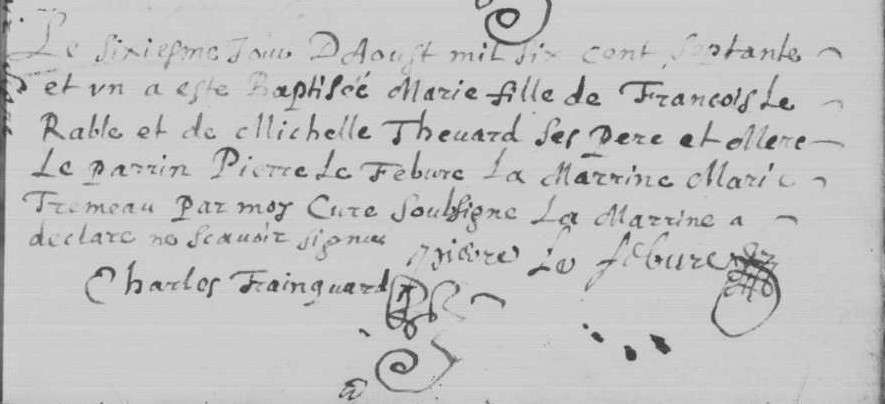 Le sixiesme Jour DAoust mil six cent septante
et vn a este Baptiséé Marie fille de Francois Le
Rable et de Michelle Theuard ses Pere et Mere
Le parrin Pierre Le Febure La Marrine Marie
Tremeau Par moy Cure soubsigne La Marrine a
declare ne scauoir signer
Charles Frainguard
pierre Le febure